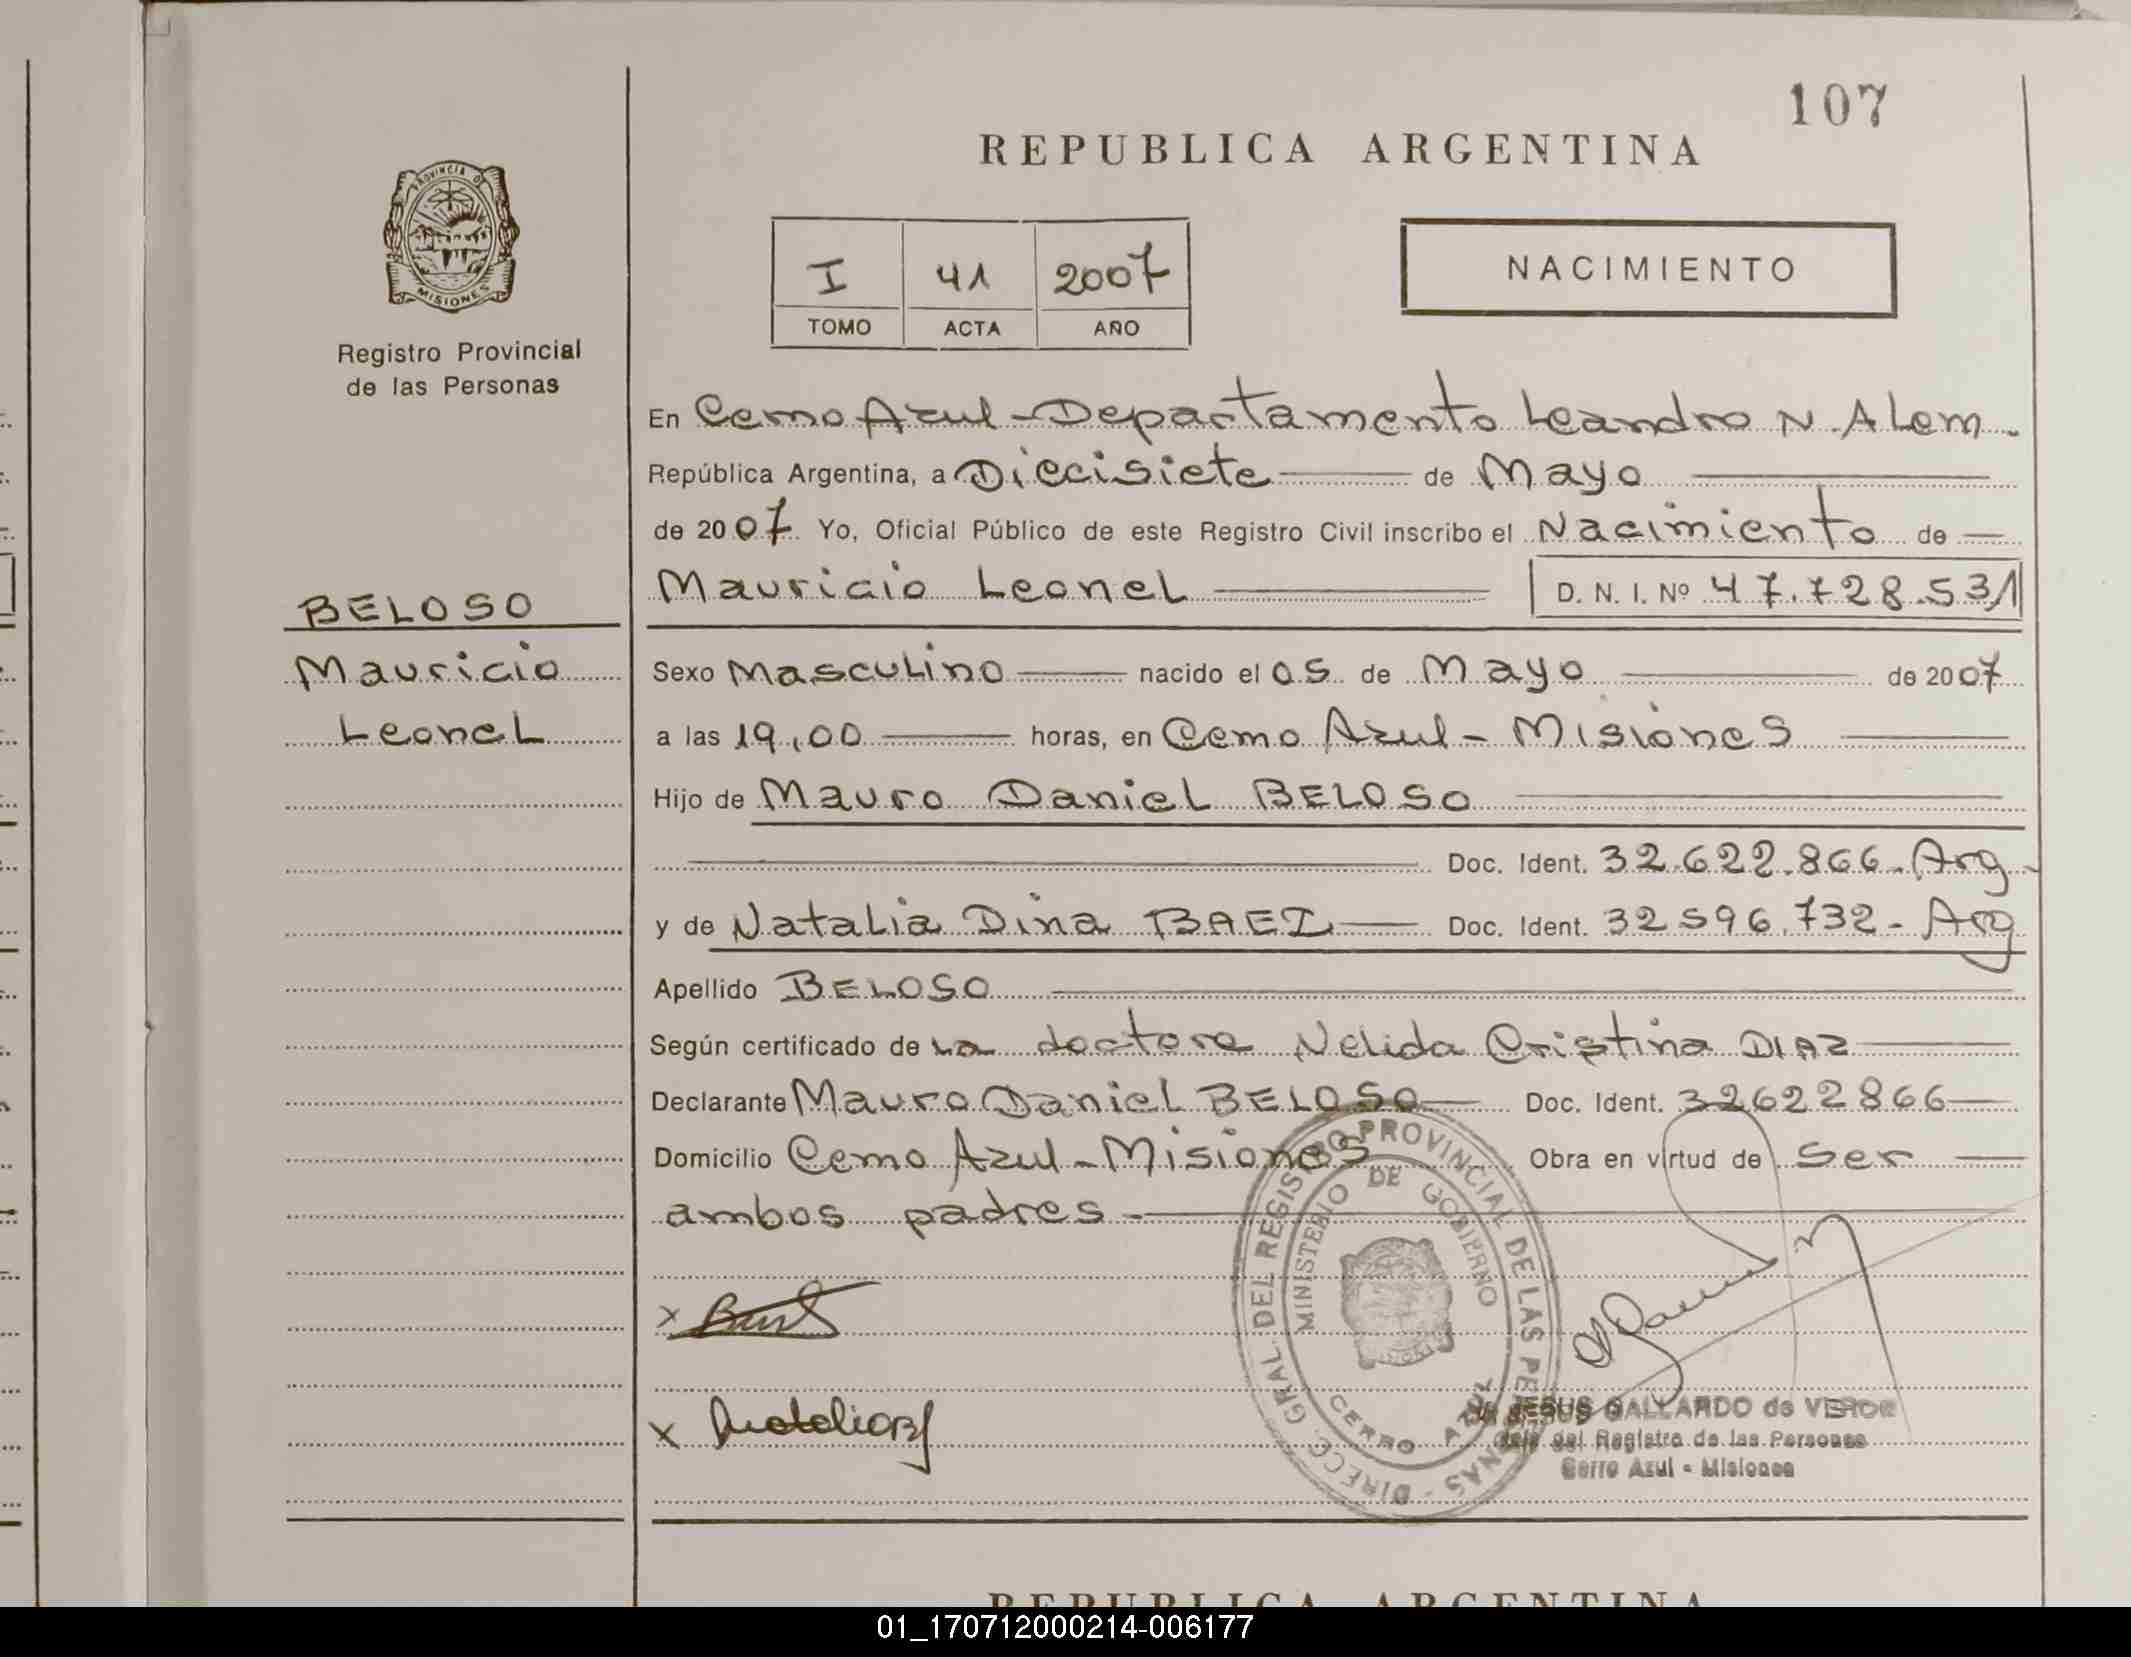 107
REPUBLICA ARGENTINA
PROVINCIA DE
MISIONES
Registro Provincial
de las Personas
I 41 2007
TOMO ACTA AÑO
NACIMIENTO
En Cerro Azul - Departamento Leandro N. Alem.
República Argentina, a Diecisiete de Mayo
de 2007 Yo, Oficial Público de este Registro Civil inscribo el Nacimiento de
Mauricio Leonel D. N. I. Nº 47.728.531
BELOSO
Mauricio
Leonel
Sexo Masculino nacido el 05 de Mayo de 2007
a las 19,00 horas, en Cerro Azul - Misiones
Hijo de Mauro Daniel BELOSO
Doc. Ident. 32.622.866 - Arg
y de Natalia Dina BAEZ Doc. Ident. 32 596.732 - Arg
Apellido BELOSO
Según certificado de La doctora Nelida Cristina DIAZ
Declarante Mauro Daniel BELOSO Doc. Ident. 32622866
Domicilio Cerro Azul - Misiones Obra en virtud de Ser
ambos padres -
x
x NataliaB
DIRECC. GRAL. DEL REGISTRO PROVINCIAL DE LAS PERSONAS -
MINISTERIO DE GOBIERNO
CERRO AZUL
JESUS GALLARDO de
Jefe del Registro de las Personas
Cerro Azul - Misiones
REPUBLICA ARGENTINA
01_170712000214-006177